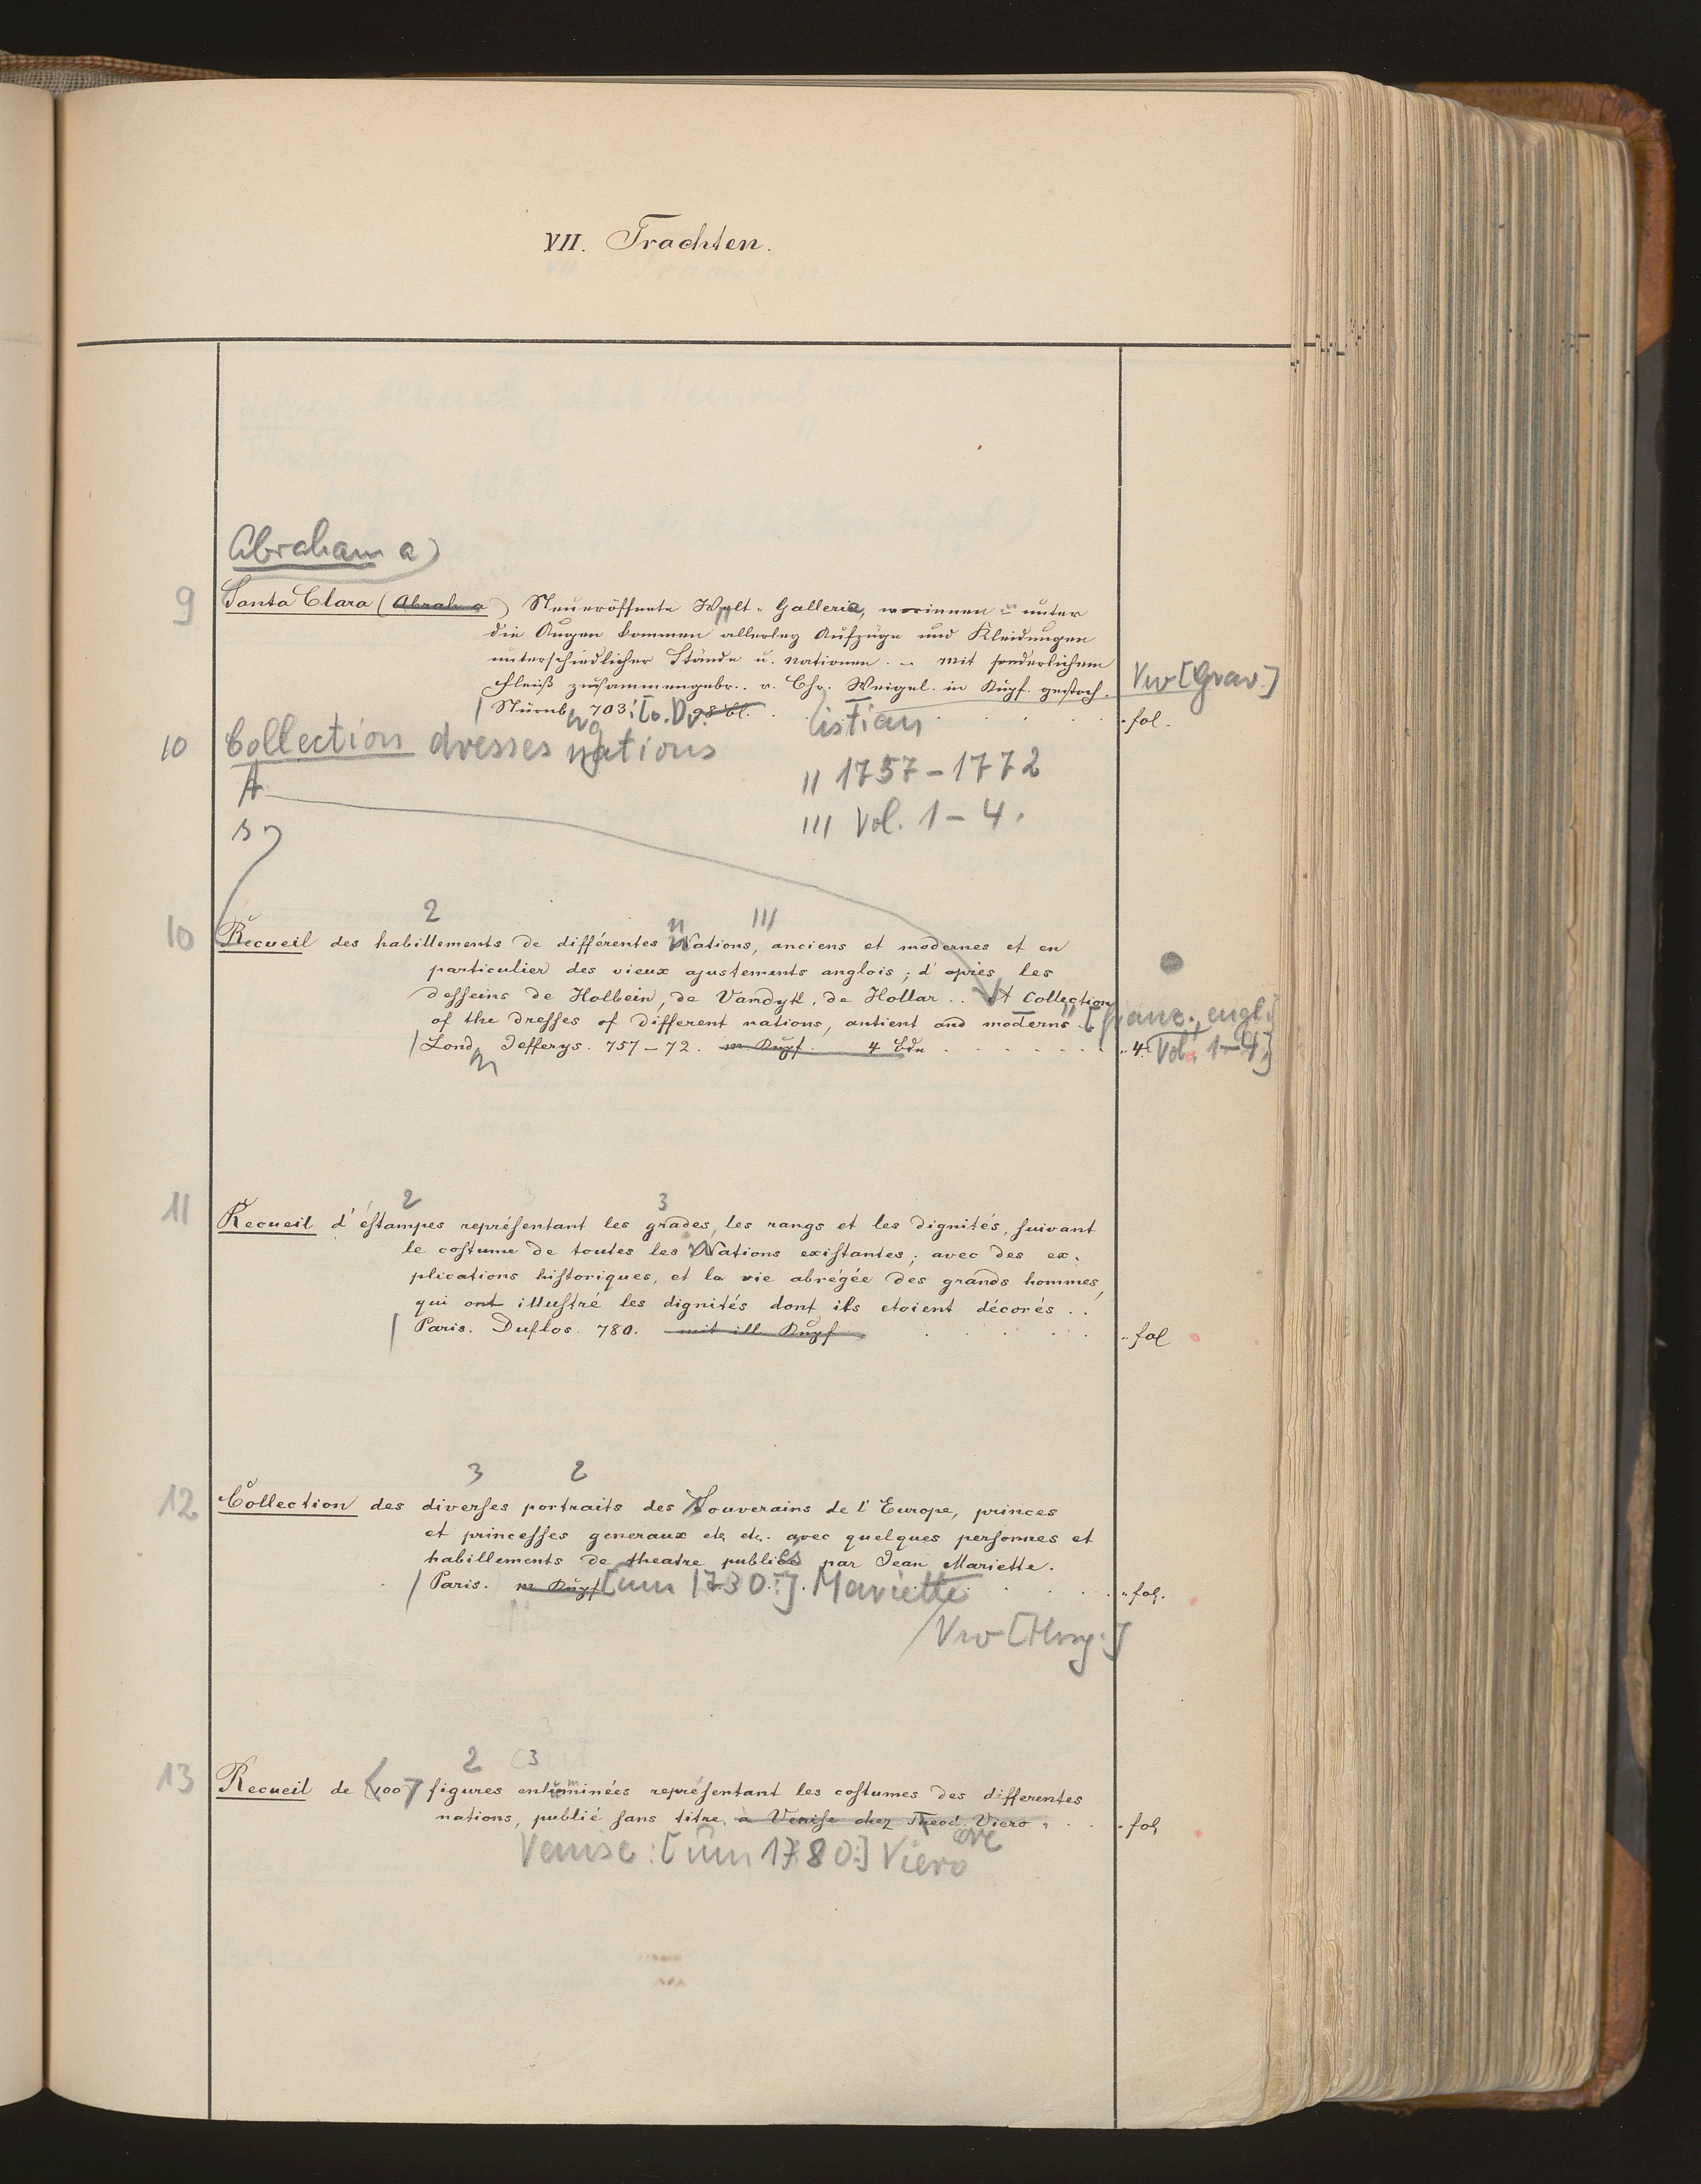 VII. Trachten.
Abraham a)
9 Santa Clara (Abrah. a) Neueröffnete Welt-Galleria, worinnen unter
die Augen kommen allerley Aufzüge und Kleidungen
unterschiedlicher Stände u. Nationen. – mit sonderlichem
Fleiß zusammengebr.. v. Chr. Weigel. in Kupf. gestoch. Vw [Grav.]
Nürnb. 703. 98 bl. istian fol.
10 Collection dresses nations
A " 1757-1772
S ''' Vol. 1-4.
2 n '''
10 Recueil des habillements de différentes Nations, anciens et modernes et en
particulier des vieux ajustements anglois; d'après les
desseins de Holbein, de Vandyk, de Hollar .. A Collection
of the dresses of different nations, antient and moderns. [franz., engl.
Lond. Jefferys. 757-72. m. Kupf. 4 Bde 4. Vol. 1-4]
2 3
11 Recueil d'éstampes représentant les grades, les rangs et les dignités, suivant
le costume de toutes les Nations existantes; avec des ex-
plications historiques, et la vie abrégée des grands hommes,
qui ont illustré les dignités dont ils etoient décorés ..
Paris. Duflos. 780. mit ill. Kupf fol
3 2
12 Collection des diverses portraits des Souverains de l'Europe, princes
et princesses generaux etc etc. avec quelques personnes et
habillements de theatre publiés par Jean Mariette.
Paris. m. Kupf [um 1730.] Mariette fol.
Vw [Hrsg.]
2 3
13 Recueil de 400 figures enluminées représentant les costumes des differentes
nations, publié sans titre, à Venise chez Theod. Viero. fol.
Venise: [um 1780:] Viero